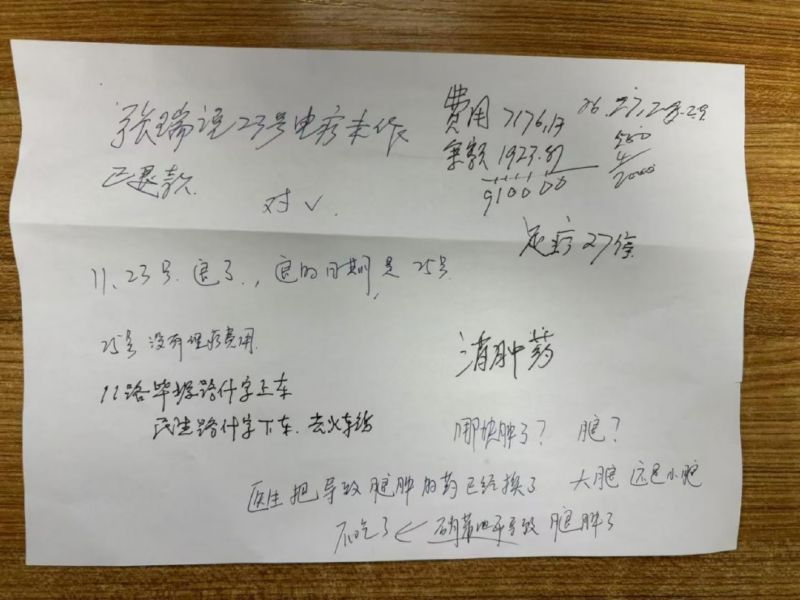 张瑞说23号电疗未作
已退款.
对√.
费用 7176,13
余额 1923.87
91000 0
26.27,28.29
500
4
2000
足疗27停
11.23号.退了.,退的日期是25号.
25号 没有理疗费用.
消肿药
11路 路什字上车
民生路什字下车.去火车站
哪块肿了? 腿?
医生把导致腿肿的药已经换了 大腿 还是小腿
不吃了← 硝苯地平导致 腿肿了